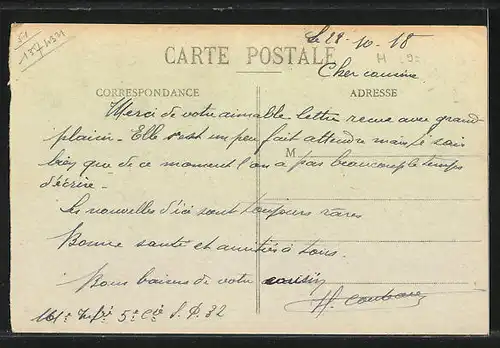 51
157431
le 29-10-18
CARTE POSTALE
H 9
Cher cousine
CORRESPONDANCE
ADRESSE
Merci de votre aimable lettre reçue avec grand
plaisir - Elle s'est un peu fait attendre mais je sais
M
bien que de ce moment l'on a pas beaucoup le temps
d'écrire -
Les nouvelles d'ici sont toujours rares
Bonne santé et amitiés à tous.
Bons baisers de votre cousin
161e Infie 5e Cie S.P. 32